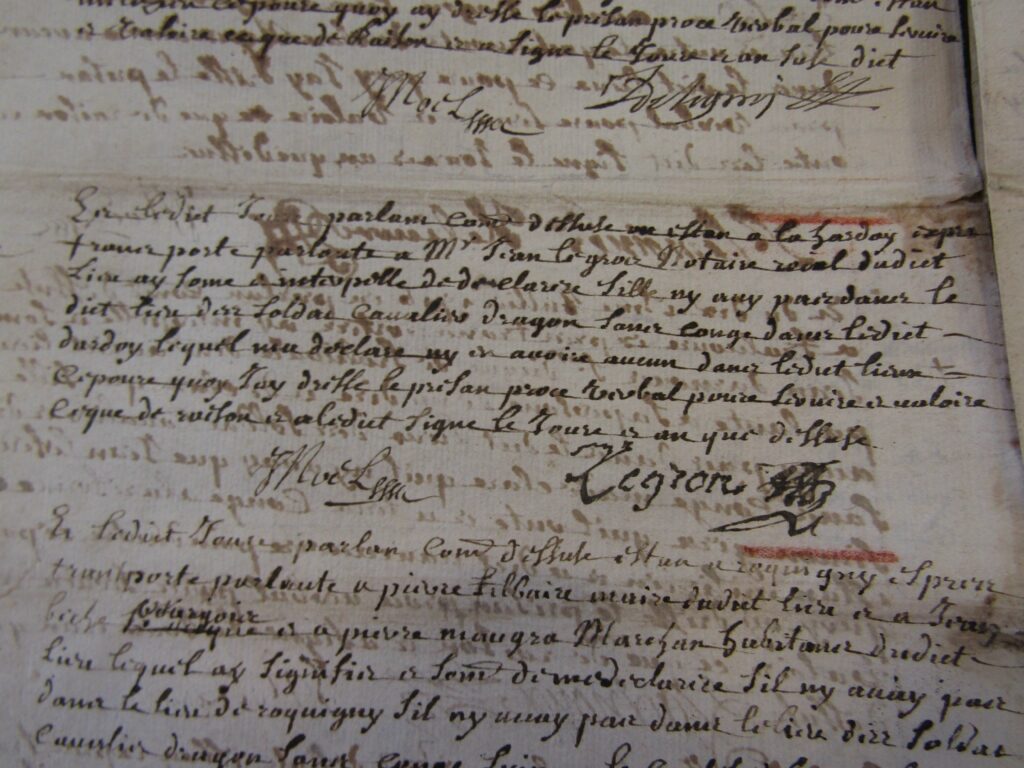 cepoure quoy ay dresse le presan proce verbal poure servire
et valoire ce que de Raison et a signe le Joure et an suse dict
Noel
Deligny
Et ledict Joure parlant com̃ dessuse estan a la hardoy expres
tranc porte parlante a Mr Jean legroe Notaire roial dudict
lieu ay some interpelle de declarire sille ny auy pas dans le
dict lieu des soldat Cavaliers dragon sans conge dans ledict
dardoy lequel ma declare ny en avoire aucun dans ledict lieux
Cepoure quoy Jay dresse le presan proce verbal poure servire et valoire
ceque de raison et a ledict signe le Joure et an que dessuse
Noel
Legron
Et ledict Joure parlan com̃ dessuse estan a roquigny espres
transporte parlante a pierre fillaire maire dudict lieu et a Jean
bourgois
et a pierre maugra Marchan habitans dudict
lieu lequel ay signifier et som̃ de me declarire sil ny auay pas
dans le lieu de roquigny sil ny auay pas dans le lieu des soldat
Cavalier dragon sans conge